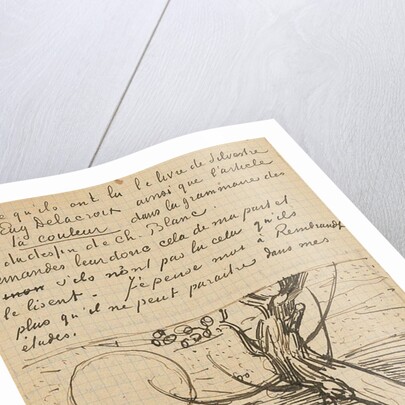 ce qu'ils ont lu le livre de Silvestre
Eug Delacroix ainsi que l'article
la couleur dans la grammaire des
du dessin de Ch. Blanc.
mandes leur donc cela de ma part et
s'ils n'ont pas lu cela qu'ils
le lisent. Je pense moi à Rembrandt
plus qu'il ne peut paraître dans mes
études.